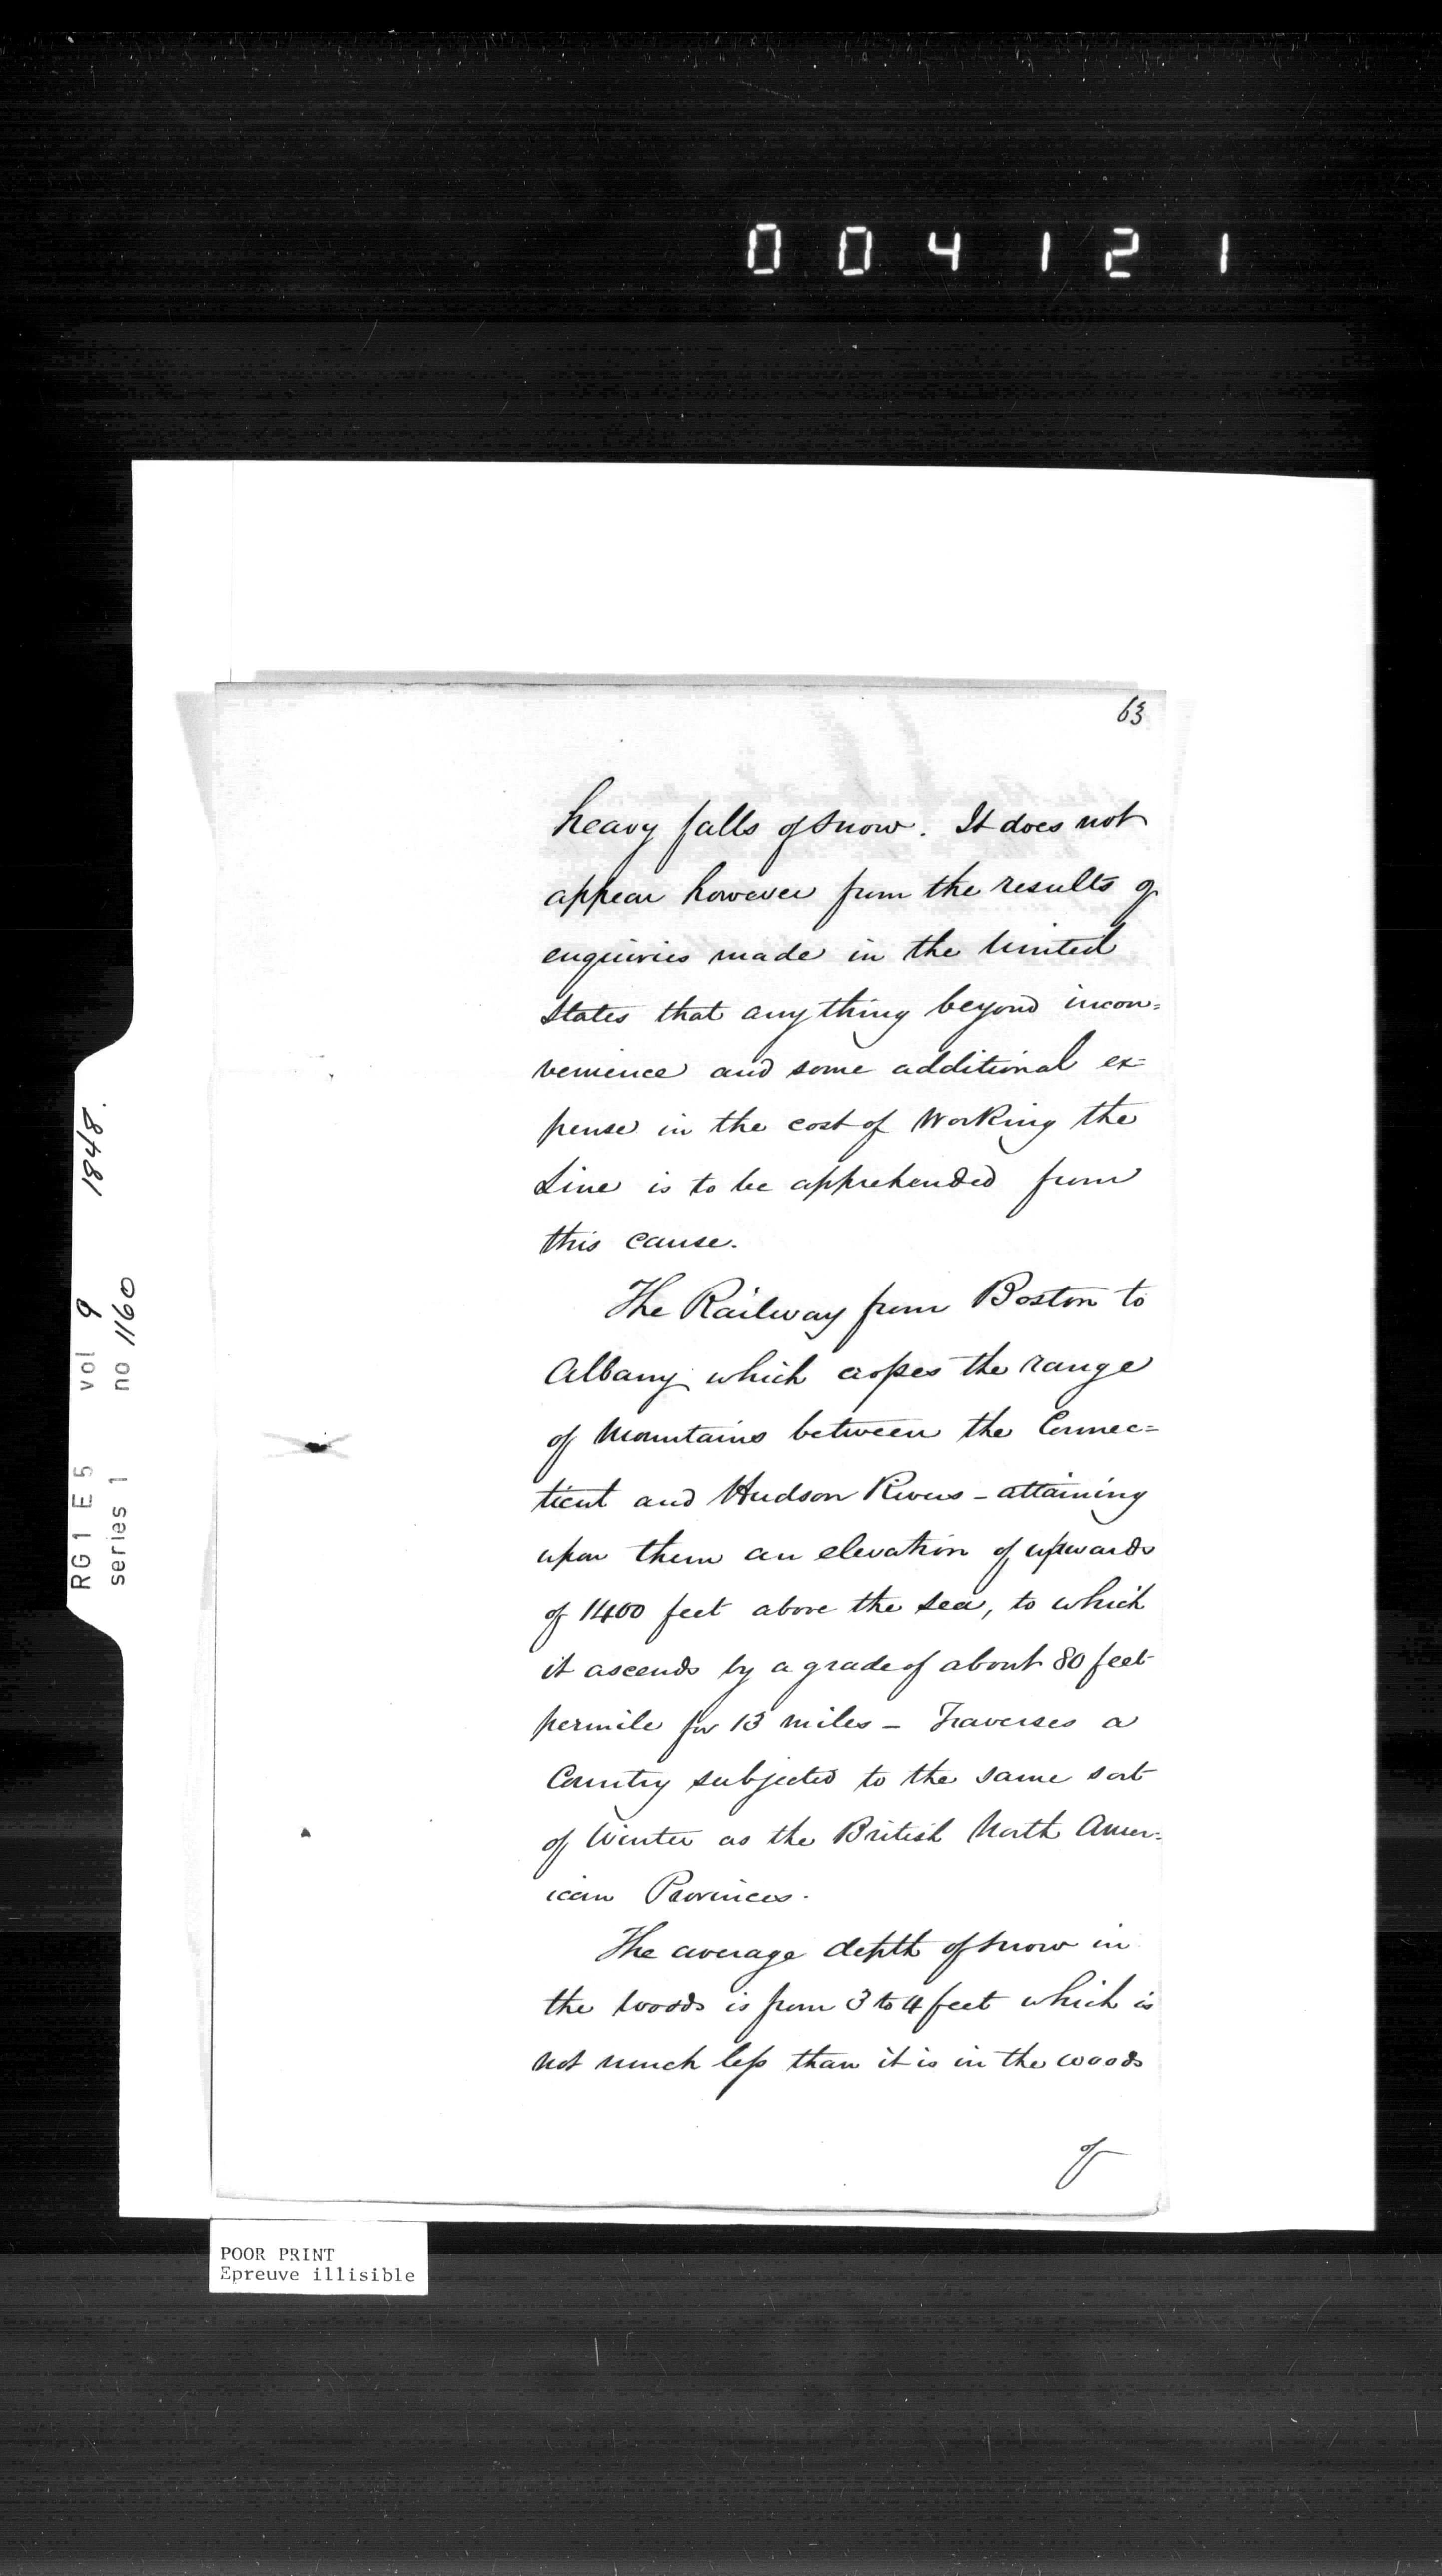 004121
63
heavy falls of snow. It does not
appear however from the results of
enquiries made in the United
States that any thing beyond incon=
venience and some additional ex=
pense in the cost of Working the
Line is to be apprehended from
this cause.
The Railway from Boston to
Albany which crosses the range
of Mountains between the Connec=
ticut and Hudson Rivers - attaining
upon them an elevation of upwards
of 1400 feet above the sea, to which
it ascends by a grade of about 80 feet
per mile for 13 miles - Traverses a
Country subjected to the same sort
of Winter as the British North Amer=
ican Provinces.
The average depth of snow in
the woods is from 3 to 4 feet which is
not much less than it is in the woods
of
RG1 E5 vol 9 1848.
series 1 no 1160
POOR PRINT
Epreuve illisible